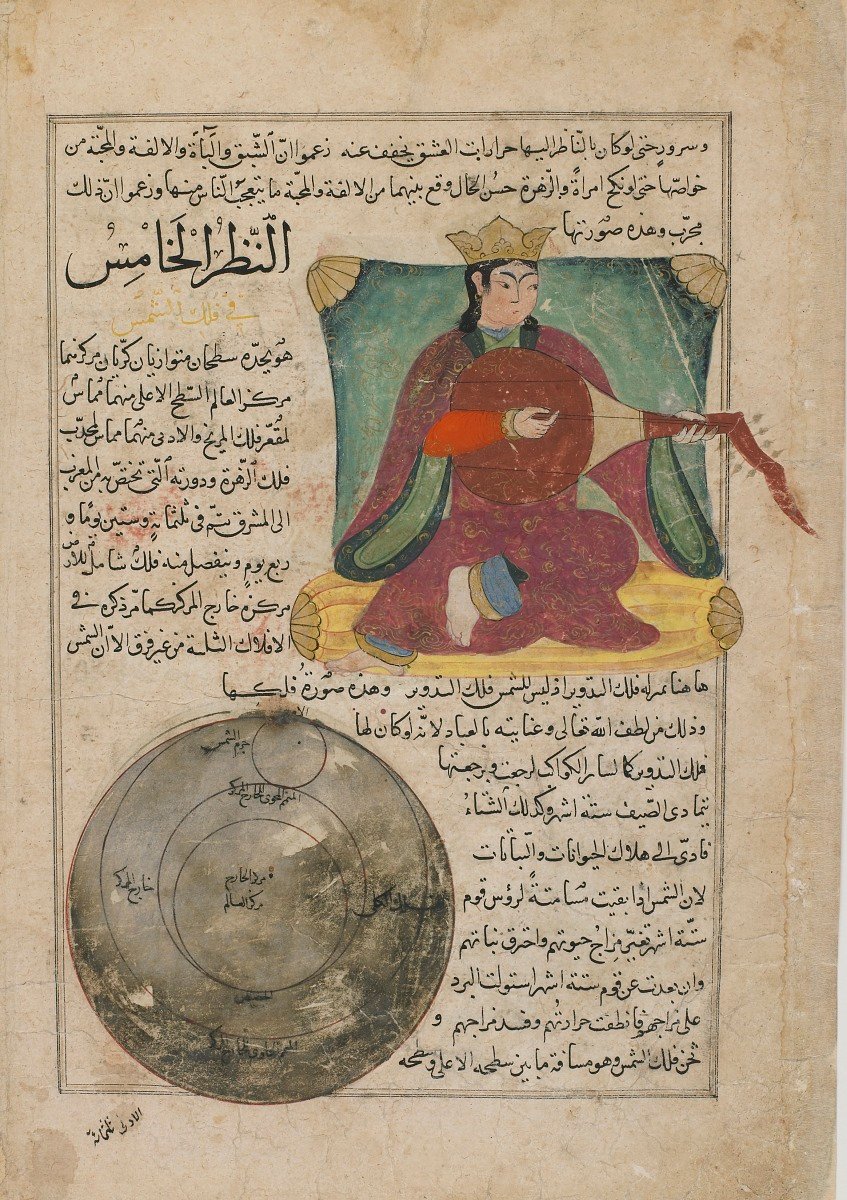 وسرور حتى لو كان بالناظر اليها حرارات العشق يخفف عنه زعموا انّ الشبق والباَة والالفة والمحبّة من
خواصّها حتى لو نكح امراةً والزهرة حسن الحال وقع بينهما من الالفة والمحبّة ما يتعجّب الناس منها وزعموا انّ ذلك
مجرّب وهذه صورتها
النّظر الخامس
في فلك الشمس
هو يحدّه سطحان متوازيان كريان مركزهما
مركز العالم السّطح الاعلى منهما مُماسّ
لمقعّر فلك المريخ والادنى منهما مماس لمحدّب
فلك الزّهرة ودورته الّتي تختصّ به من المغرب
الى المشرق تتمّ في ثلثمائة وستين يوما و
ربع يوم وينفصل منه فلك شامل للارض
مركزه خارج المركز كما مرّ ذكره في
الافلاك الثلثة من غير فرق الاّ انّ الشمس
هاهنا بمنزلة فلك التدوير اذ ليس للشمس فلك التدوير وهذه صورة فلكها
وذلك من لطف الله تعالى وعنايته بالعباد لانه لو كان لها
فلك التدوير كما لسائر الكواكب لرجعت وبرجعتها
يتمادى الصّيف ستة اشهر وكذلك الشتاء
فادّى الى هلاك الحيوانات والنباتات
لان الشمس اذا بقيت مسامتةً لرؤس قوم
ستّة اشهر تغيّر مزاج حيوتهم واحترق نباتهم
وان بعدت عن قوم ستة اشهر استولت البرد
على مزاجهم فانطفت حرارتهم وفسد مزاجهم و
ثخن فلك الشمس وهو مسافة ما بين سطحه الاعلى وسطحه
جرم الشمس
المتمم المحوى للخارج المركز
خارج المركز
مركز الخارج
مركز العالم
الفلك الكلى
الحضيض
الادنى ثلثمائة